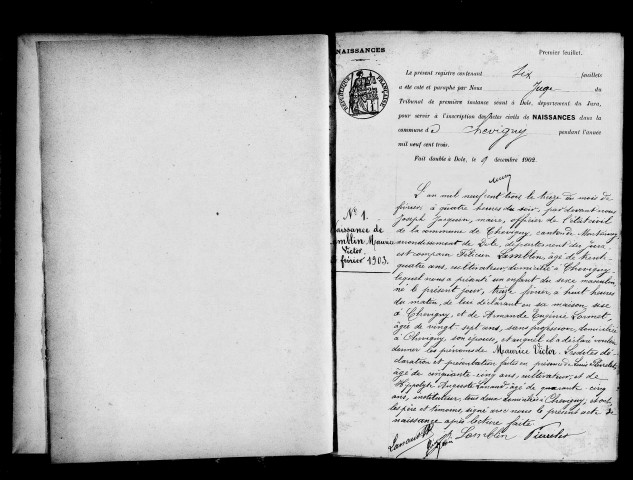 NAISSANCES
Premier feuillet.
RÉPUBLIQUE FRANÇAISE
Le présent registre contenant Six feuillets
a été coté et paraphé par Nous Juge du
Tribunal de première instance séant à Dole, département du Jura,
pour servir à l'inscription des actes civils de NAISSANCES dans la
commune de Chevigny pendant l'année
mil neuf cent trois.
Fait double à Dole, le 9 décembre 1902.
No 1.
Naissance de
Lamblin Maurice
Victor
février 1903.
L'an mil neuf cent trois le treize du mois de
février, à quatre heures du soir, par devant nous
Joseph Jacquin, maire, officier de l'état civil
de la commune de Chevigny, canton de Montmirey
arrondissement de Dole, département du Jura,
est comparu Félicien Lamblin, âgé de trente
quatre ans, cultivateur, domicilié à Chevigny
lequel nous a présenté un enfant du sexe masculin
né le présent jour, treize février à huit heures
du matin, de lui déclarant en sa maison sise
à Chevigny, et de Armande Eugénie
âgée de vingt sept ans, sans profession, domiciliée
à Chevigny, son épouse, et auquel il a déclaré vouloir
donner les prénoms de Maurice Victor. Lesdites dé-
claration et présentation faites en présence de Louis
âgé de cinquante cinq ans, cultivateur, et de
Hippolyte Auguste âgé de quarante cinq
ans, instituteur, tous deux domiciliés à Chevigny, et ont
les père et témoins, signé avec nous le présent acte de
naissance après lecture faite.
Lamblin